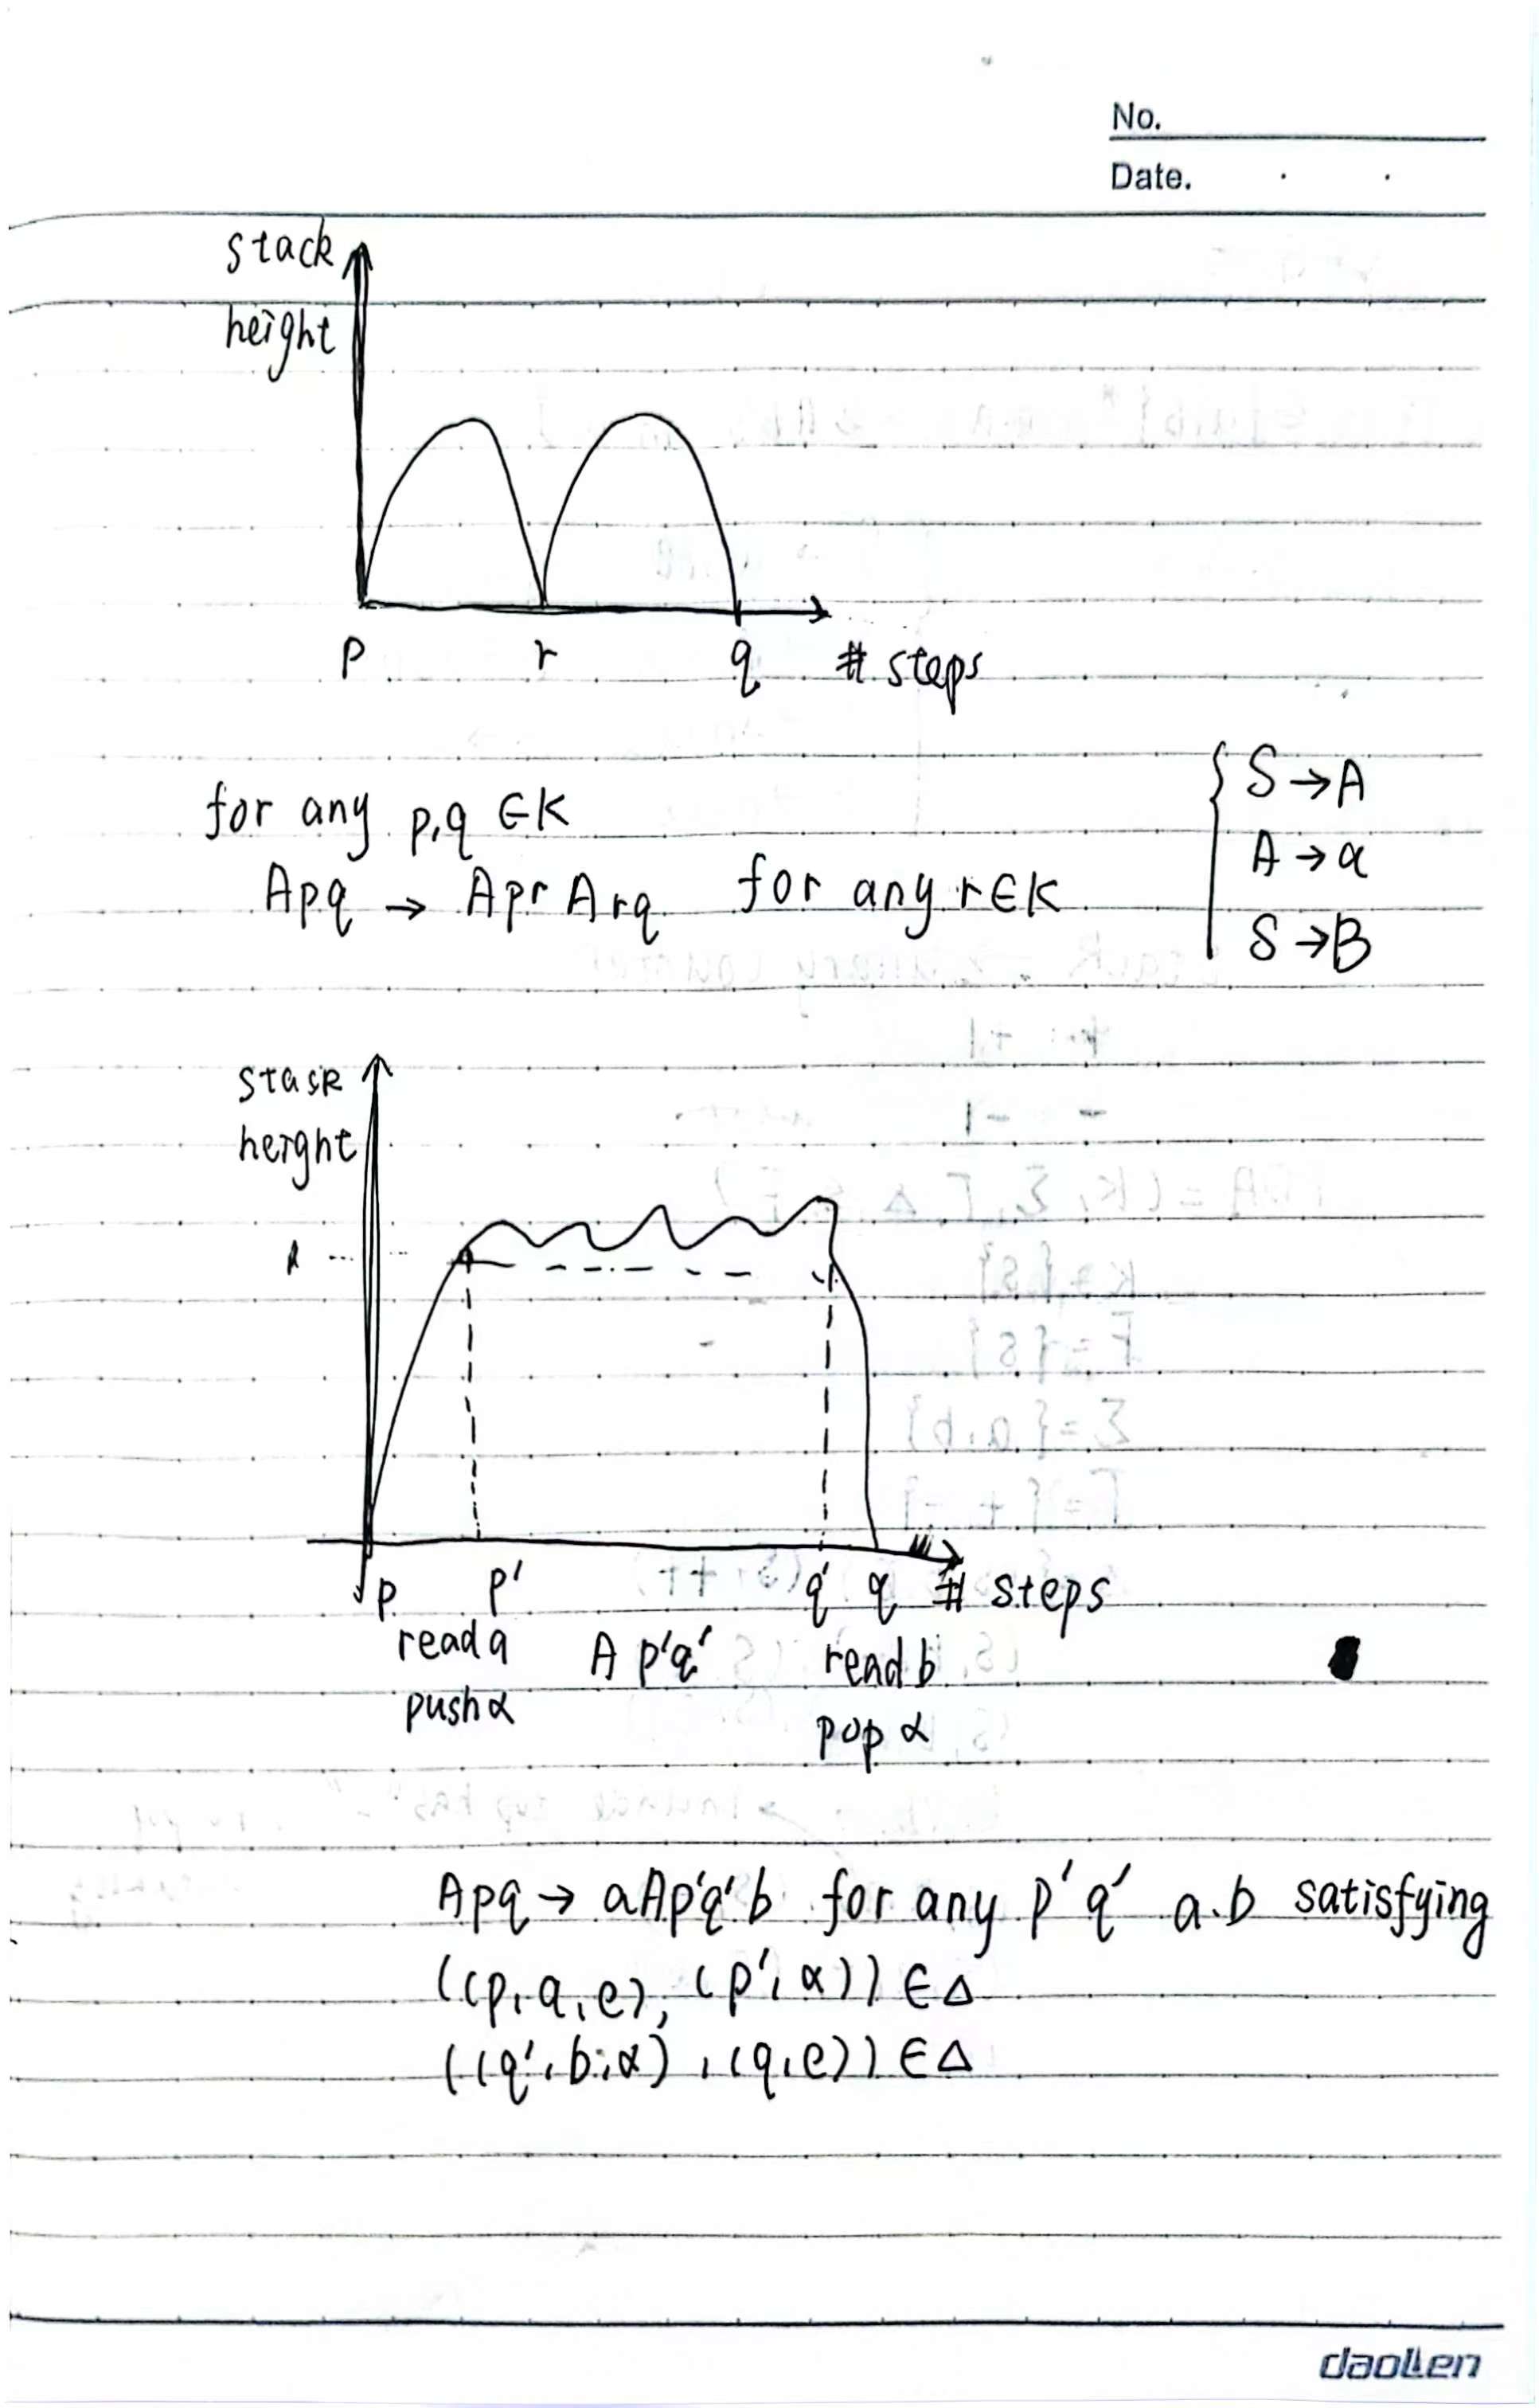 No.
Date.
stack
height
p r q # steps
for any p,q ∈K
Apq → Apr Arq for any r∈K
S → A
A → a
S → B
stack
height
p p' q' q # steps
read a A p'q' read b
push α pop α
Apq → aAp'q'b for any p' q' a.b satisfying
((p,a,e), (p',α)) ∈Δ
((q',b,α),(q,e)) ∈Δ
daolen